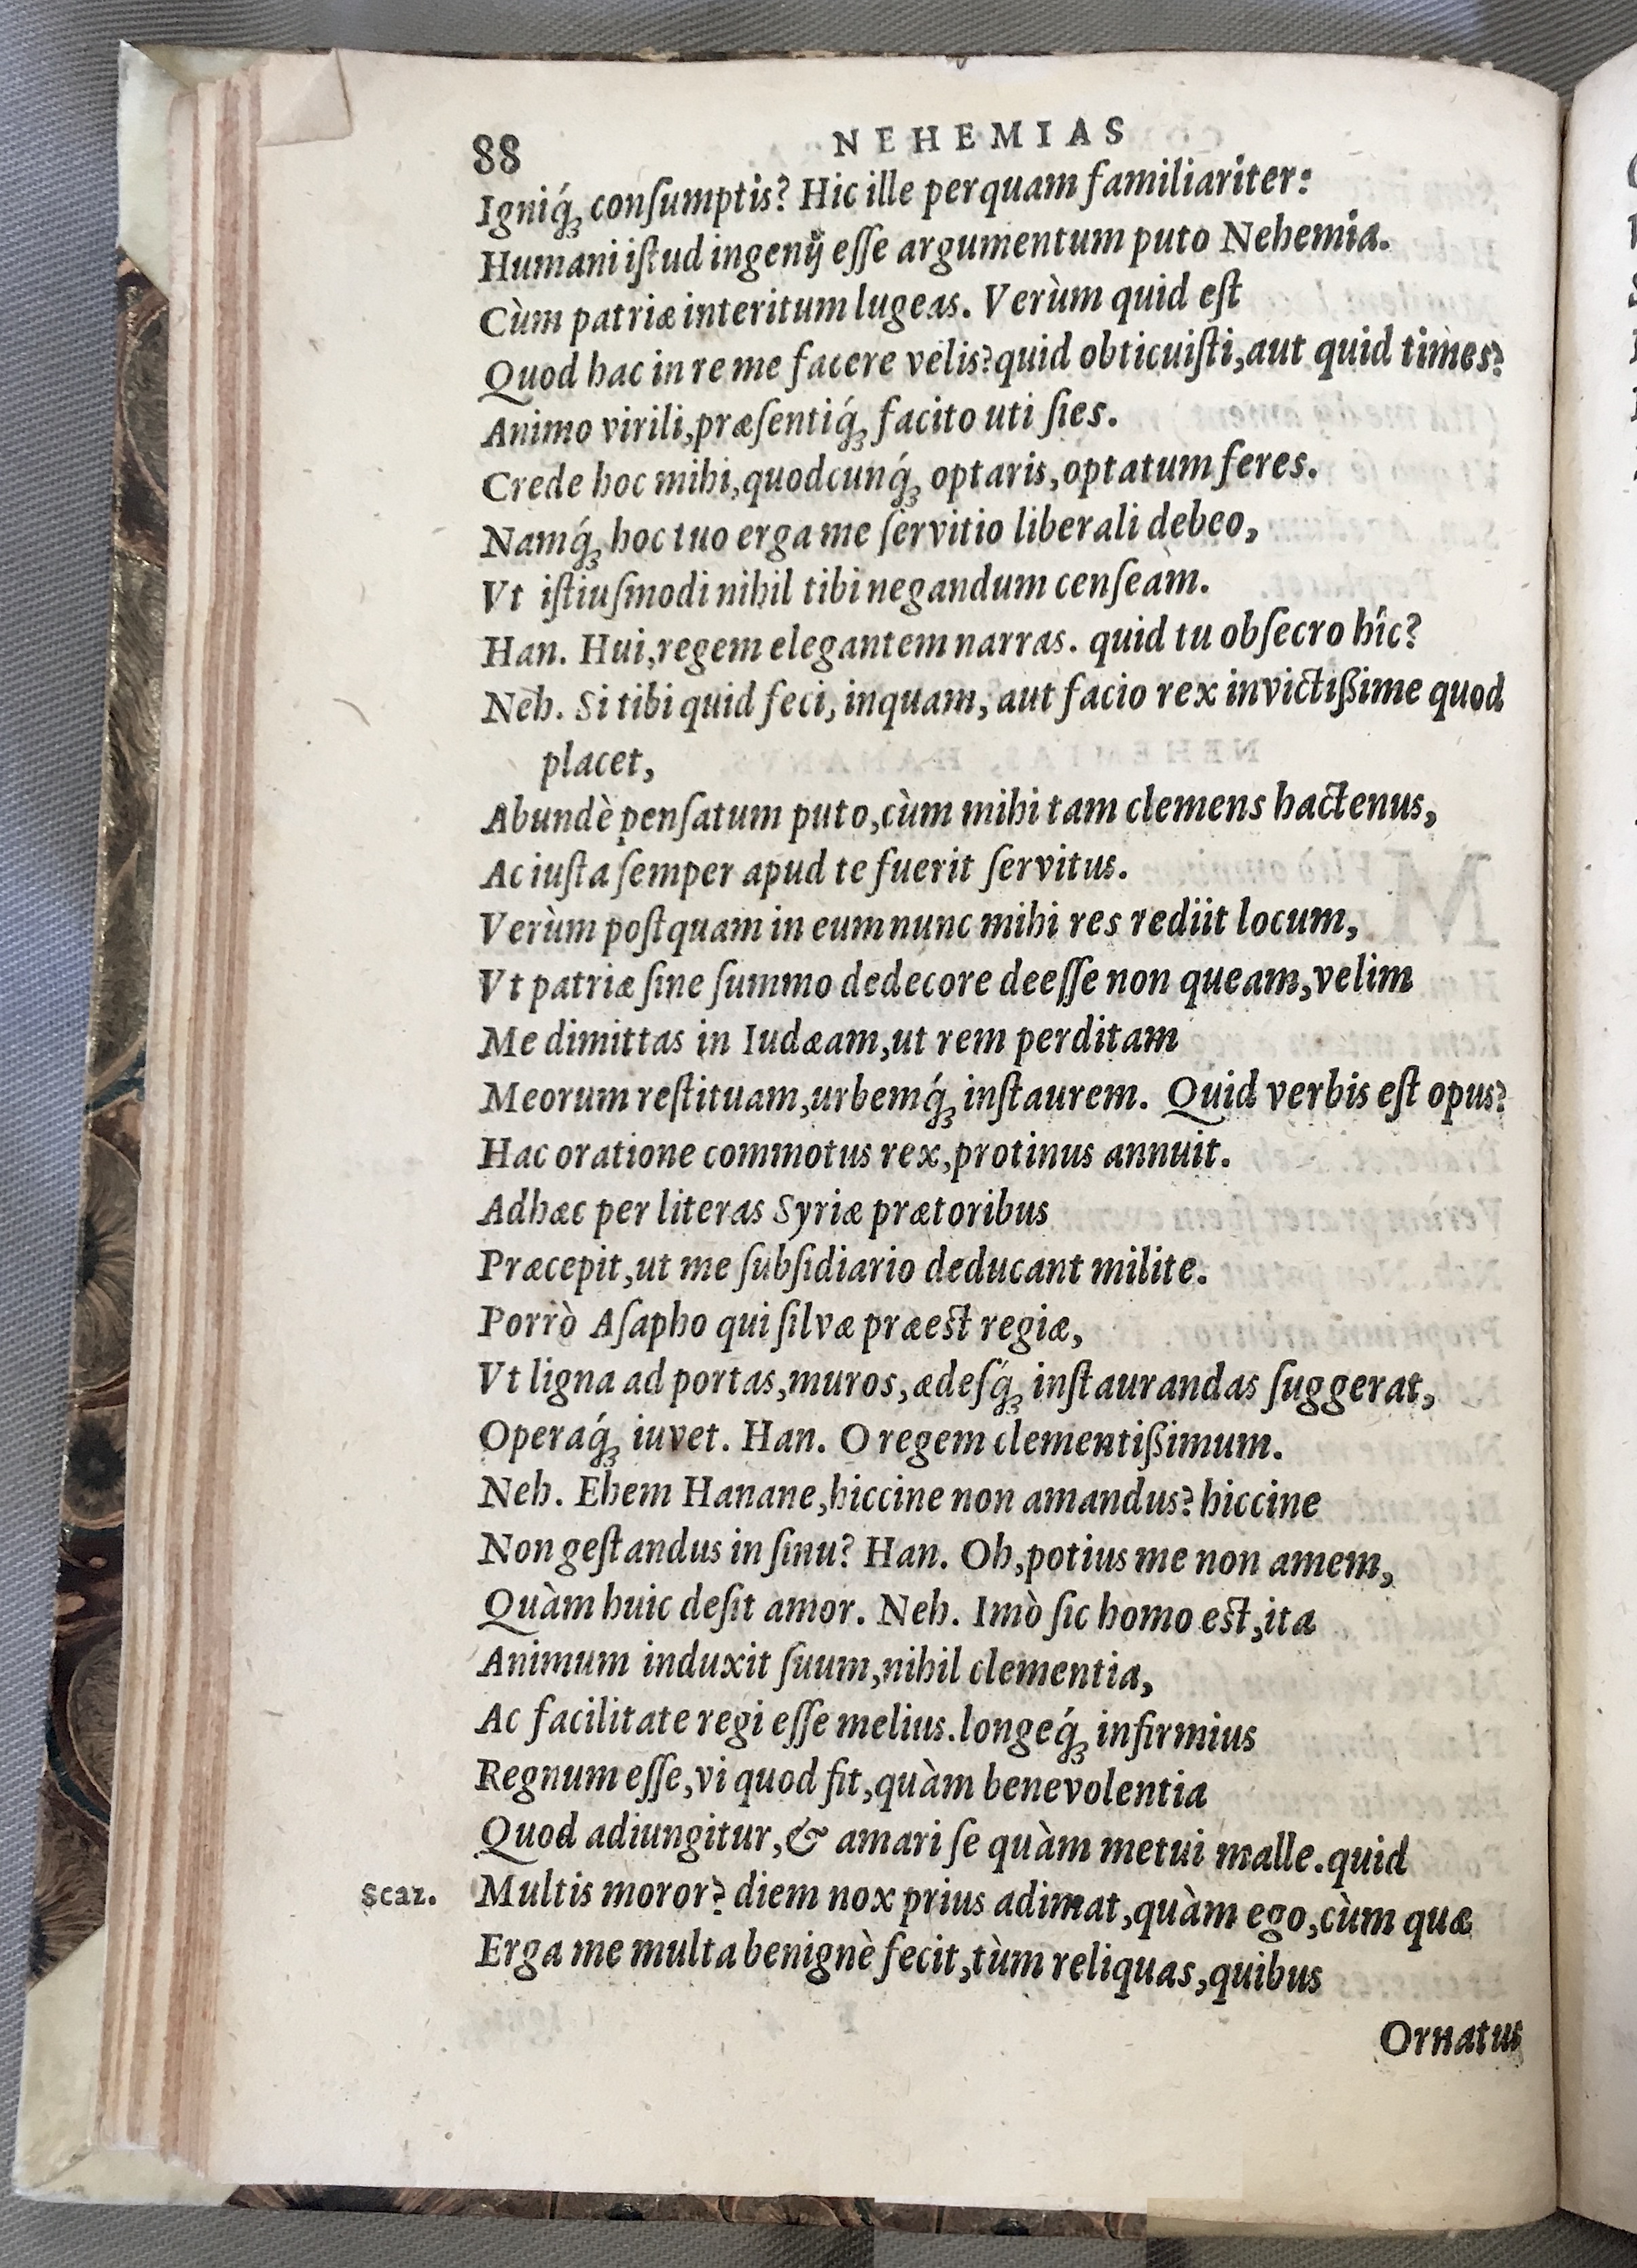 88 NEHEMIAS
Igniq́ꝫ conſumptis? Hic ille perquam familiariter:
Humani iſtud ingenij eſſe argumentum puto Nehemia.
Cùm patriæ interitum lugeas. Verùm quid eſt
Quod hac in re me facere velis? quid obticuiſti, aut quid times?
Animo virili, præſentiq́ꝫ facito uti ſies.
Crede hoc mihi, quodcunq́ꝫ optaris, optatum feres.
Namq́ꝫ hoc tuo erga me ſervitio liberali debeo,
Vt iſtiuſmodi nihil tibi negandum cenſeam.
Han. Hui, regem elegantem narras. quid tu obſecro hîc?
Neh. Si tibi quid feci, inquam, aut facio rex invictißime quod
placet,
Abundè penſatum puto, cùm mihi tam clemens hactenus,
Ac iuſta ſemper apud te fuerit ſervitus.
Verùm poſtquam in eum nunc mihi res rediit locum,
Vt patriæ ſine ſummo dedecore deeſſe non queam, velim
Me dimittas in Iudæam, ut rem perditam
Meorum reſtituam, urbemq́ꝫ inſtaurem. Quid verbis eſt opus?
Hac oratione commotus rex, protinus annuit.
Adhæc per literas Syriæ prætoribus
Præcepit, ut me ſubſidiario deducant milite.
Porrò Aſapho qui ſilvæ præest regiæ,
Vt ligna ad portas, muros, ædeſq́ꝫ inſtaurandas ſuggerat,
Operaq́ꝫ iuvet. Han. O regem clementißimum.
Neh. Ehem Hanane, hiccine non amandus? hiccine
Non geſtandus in ſinu? Han. Oh, potius me non amem,
Quàm huic deſit amor. Neh. Imò ſic homo est, ita
Animum induxit ſuum, nihil clementia,
Ac facilitate regi eſſe melius. longeq́ꝫ infirmius
Regnum eſſe, vi quod fit, quàm benevolentia
Quod adiungitur, & amari ſe quàm metui malle. quid
Scaz. Multis moror? diem nox prius adimat, quàm ego, cùm quæ
Erga me multa benignè fecit, tùm reliquas, quibus
Ornatus